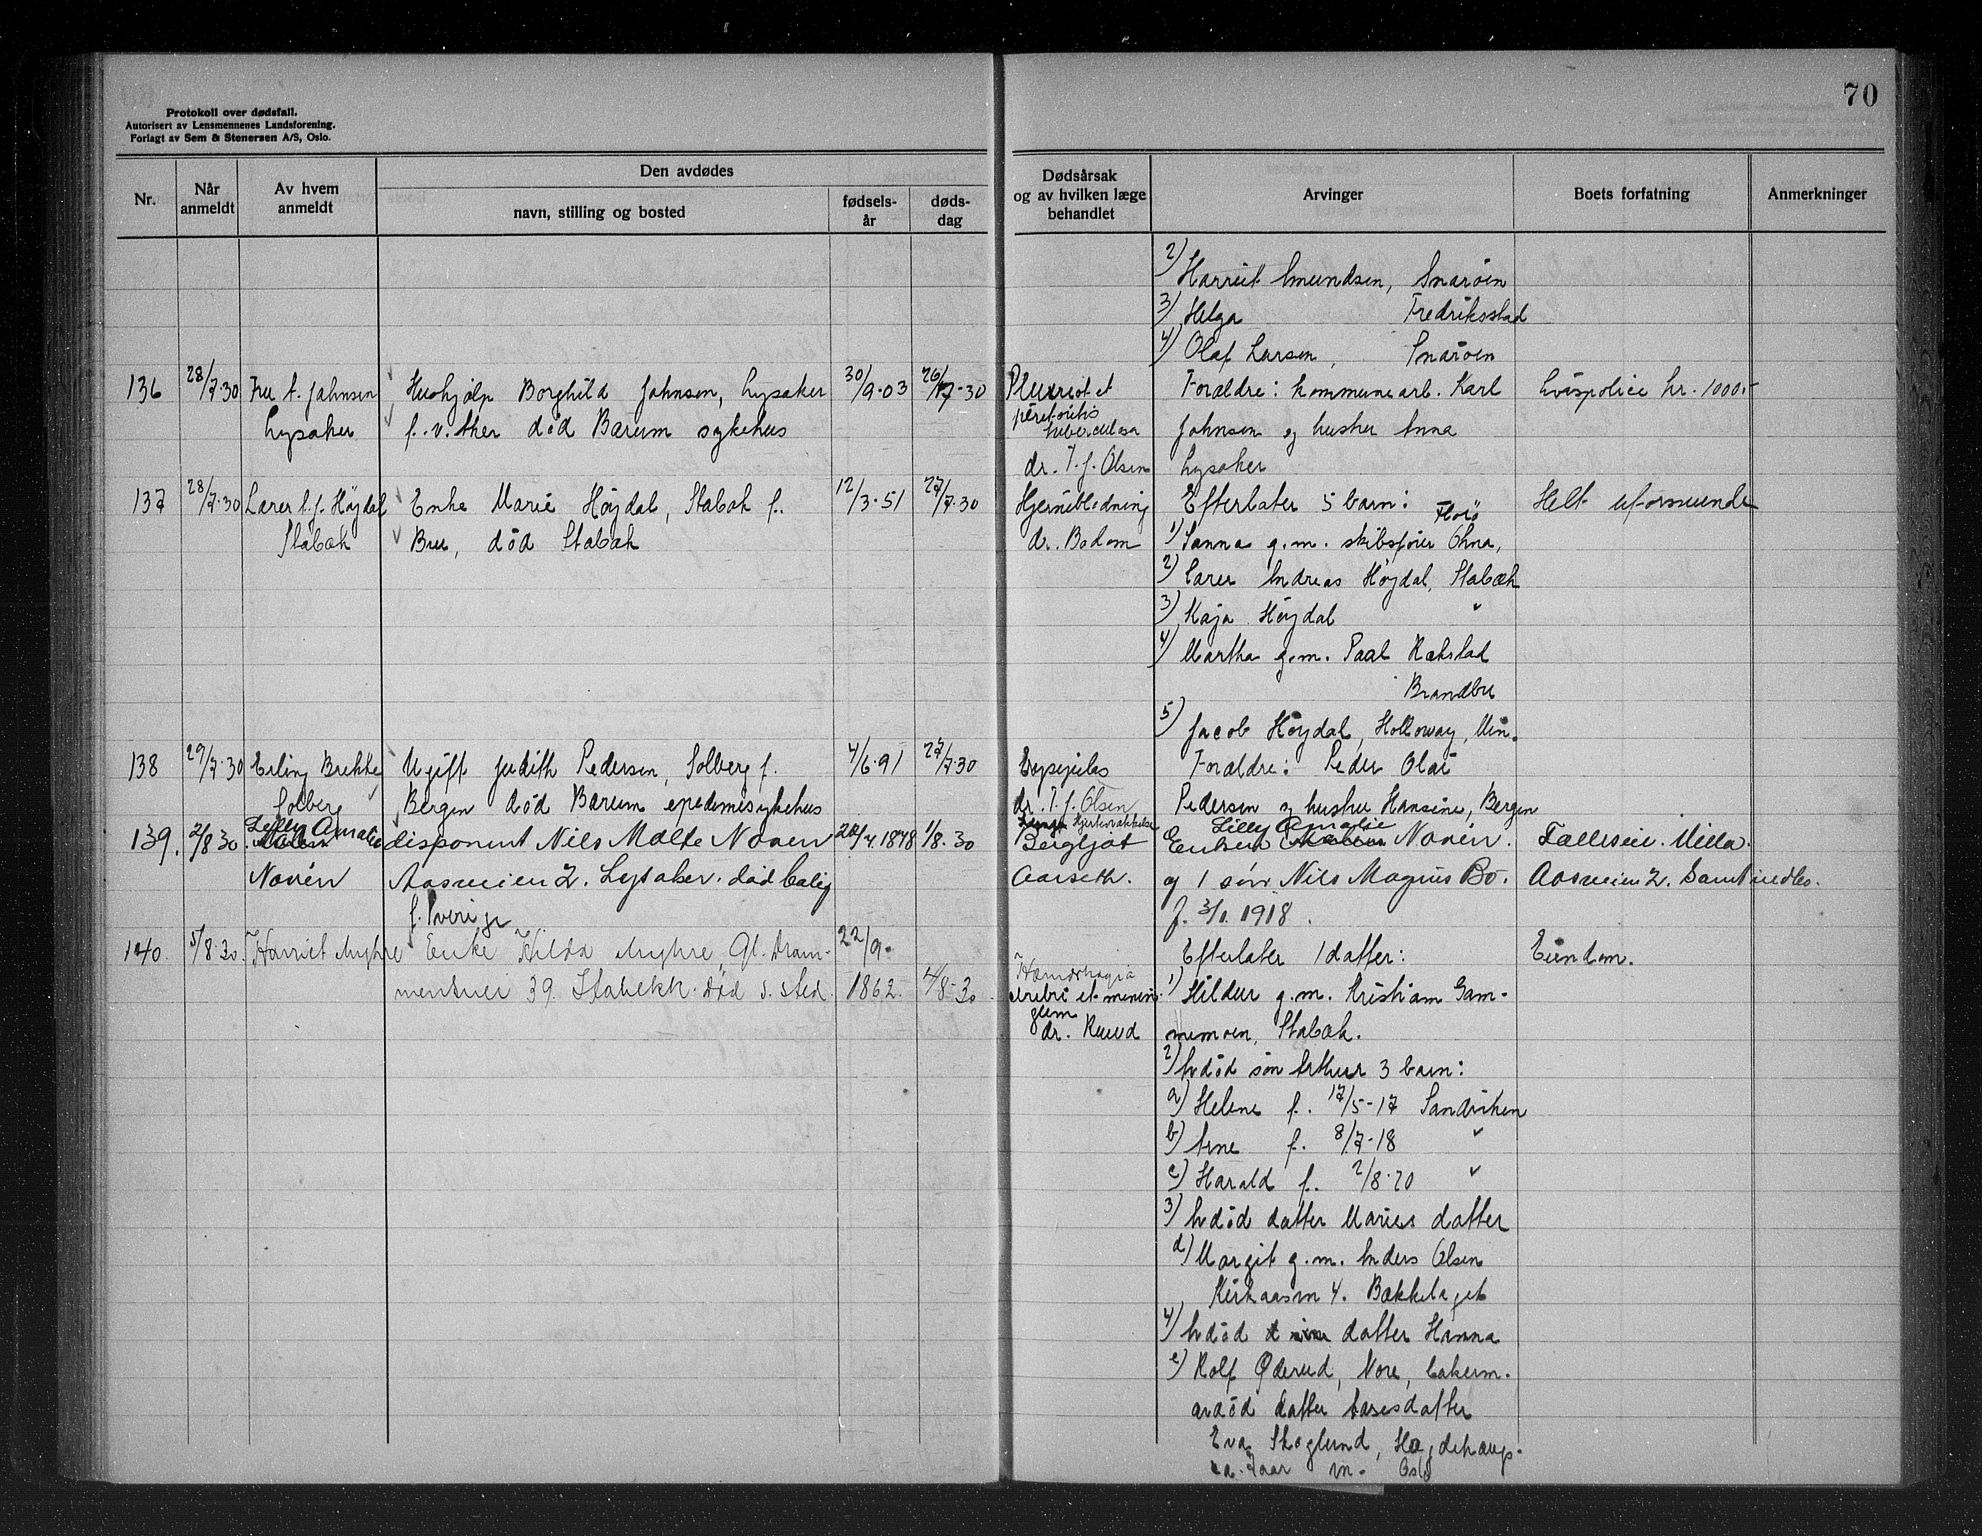 70
Protokoll over dødsfall.
Autorisert av Lensmennenes Landsforening.
Forlagt av Sem & Stenersen A/S, Oslo.
Nr.
Når anmeldt
Av hvem anmeldt
Den avdødes
navn, stilling og bosted
fødsels-år
døds-dag
Dødsårsak og av hvilken læge behandlet
Arvinger
Boets forfatning
Anmerkninger
2) Harriet Amundsen, Snarøen
3) Helga Fredriksstad
4) Olaf Larsen, Snarøen
136 28/7-30 Fru A. Johnsen Hushjælp Borghild Johnsen, Lysaker 30/9-03 26/7-30 Pleurit et Forældre: kommunearb. Karl Livspolice kr. 1000.-
Lysaker f. v. Aker død Bærum sykehus peretonitis tuberculosa Johnsen og hustru Anna
dr. T. f. Olsen Lysaker
137 28/7-30 Lærer A. f. Høydal Enke Marie Høydal, Stabæk f. 12/3-51 27/7-30 Hjerneblødning Efterlater 5 barn: Helt uformuende
Stabæk Bru, død Stabæk dr. Bodom 1) Sanna g.m. skibsfører Ohna, Florø
2) Lærer Andreas Høydal, Stabæk
3) Kaja Høydal "
4) Martha g.m. Paal Rækstad
Brandbu
5) Jacob Høydal, Holloway, Min.
138 29/7-30 Erling Brekke, Ugift Judith Pedersen, Solberg f. 4/6-91 27/7-30 Erysipelas Forældre: Peder Olai
Solberg Bergen død Bærum epedemisykehus dr. T. f. Olsen Pedersen og hustru Hansine, Bergen
Lilly Amalie Hjertesvækkelse Lilly Amalie
139. 2/8 30 disponent Nils Malte Norén 24/4. 1878 1/8. 30 Bergljot Enken Norén. Fælleseie. Villa
Norén Aasveien 2. Lysaker. død bolig Aarseth. og 1 søn Nils Magnus Bo. Aasveien 2. Samt indbo.
f. Sverige f. 3/1. 1918.
140. 5/8-30 Harriet Myhre Enke Hilda Myhre, Gl. Dram- 22/9- Efterlater 1 datter: Eiendom.
mensvei 39. Stabekk. død s. sted. 1862. 4/8-30 Hæmorhagia cerebri et meningum 1) Hildur g.m. Kristian Gam-
dr. Ruud memoen, Stabæk.
2) Avdød søn Arthur 3 barn:
a) Helene f. 17/5-17 Sandviken
b) Arne f. 8/7-18 "
c) Harald f. 2/8-20 "
3) Avdød datter Maries datter
d) Margit g.m. Anders Olsen
Kirkaasvn 4. Bækkelaget
4) Avdød datter Hanna
e) Rolf Øderud, Nore,
avdød datter Aasesdatter
Eva Skoglund, Hægdehaugs-
vn. Oslo